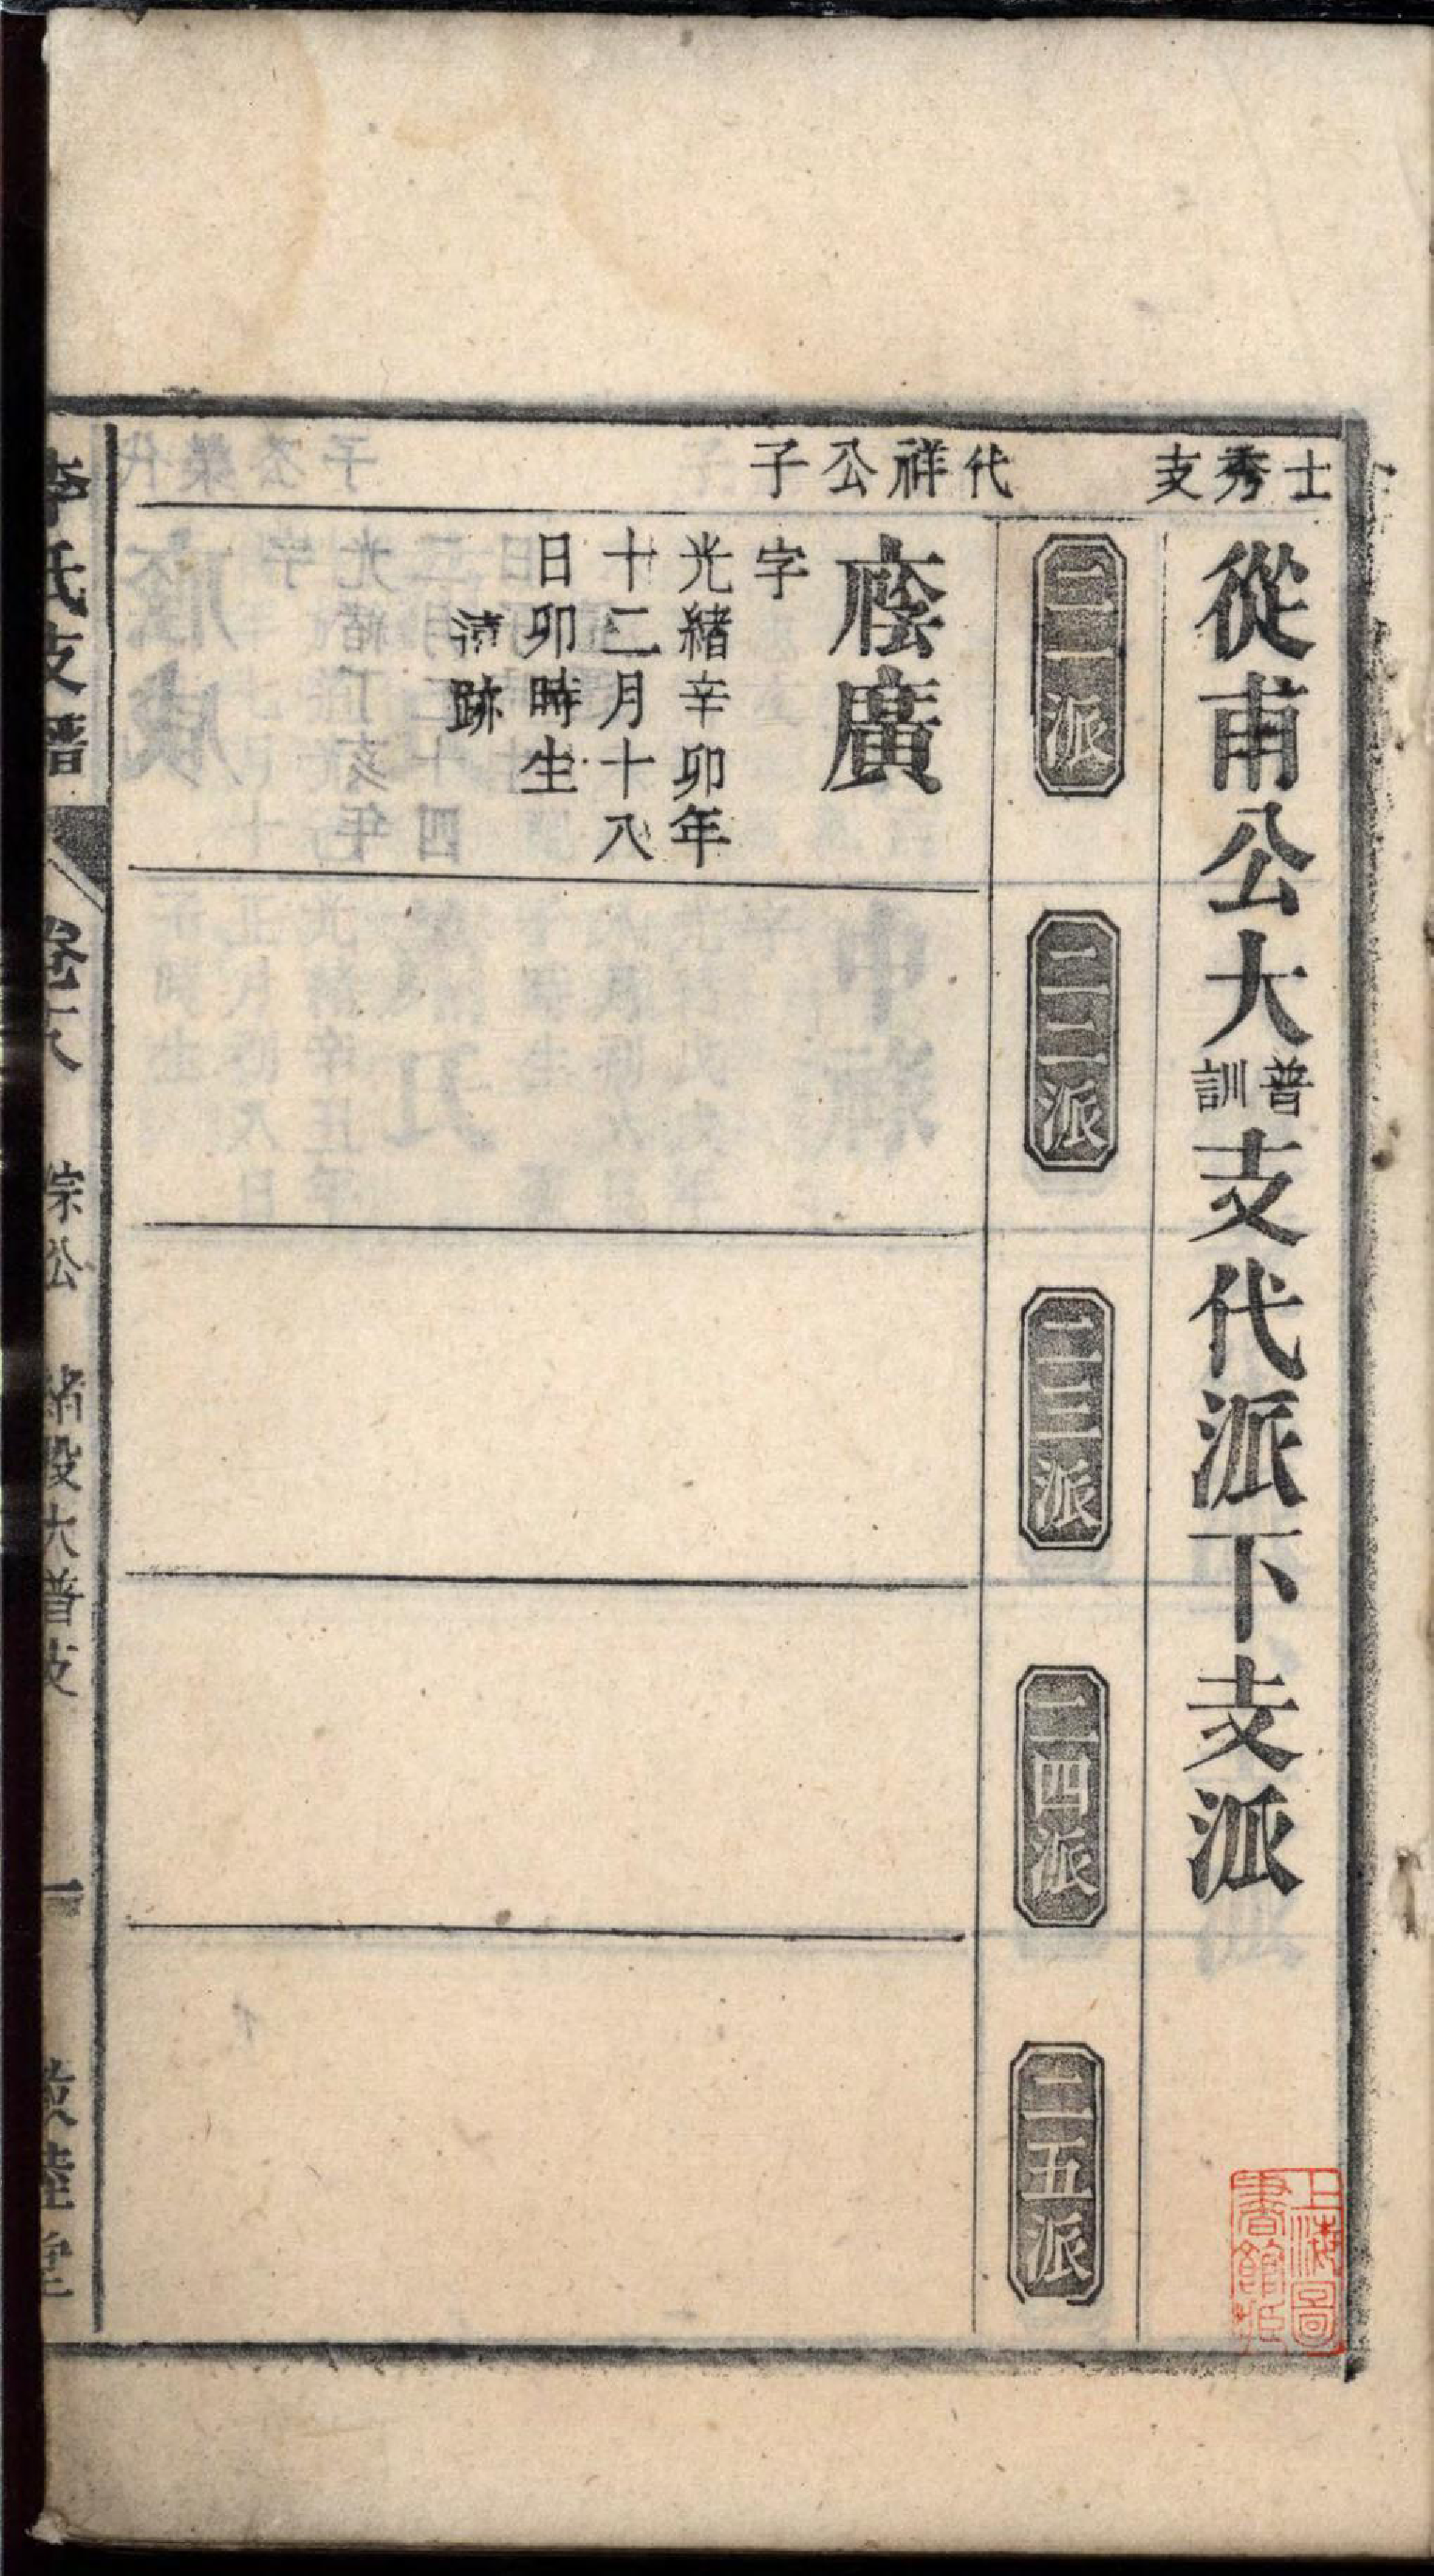 士秀支
從甫公大普訓支代派下支派
二一派
二二派
二三派
二四派
二五派
代祥公子
廕廣
字
光緒辛卯年
十二月十八
日卯時生
清跡
李氏支譜
卷六
崇公
緒設大普支
一
敦睦堂